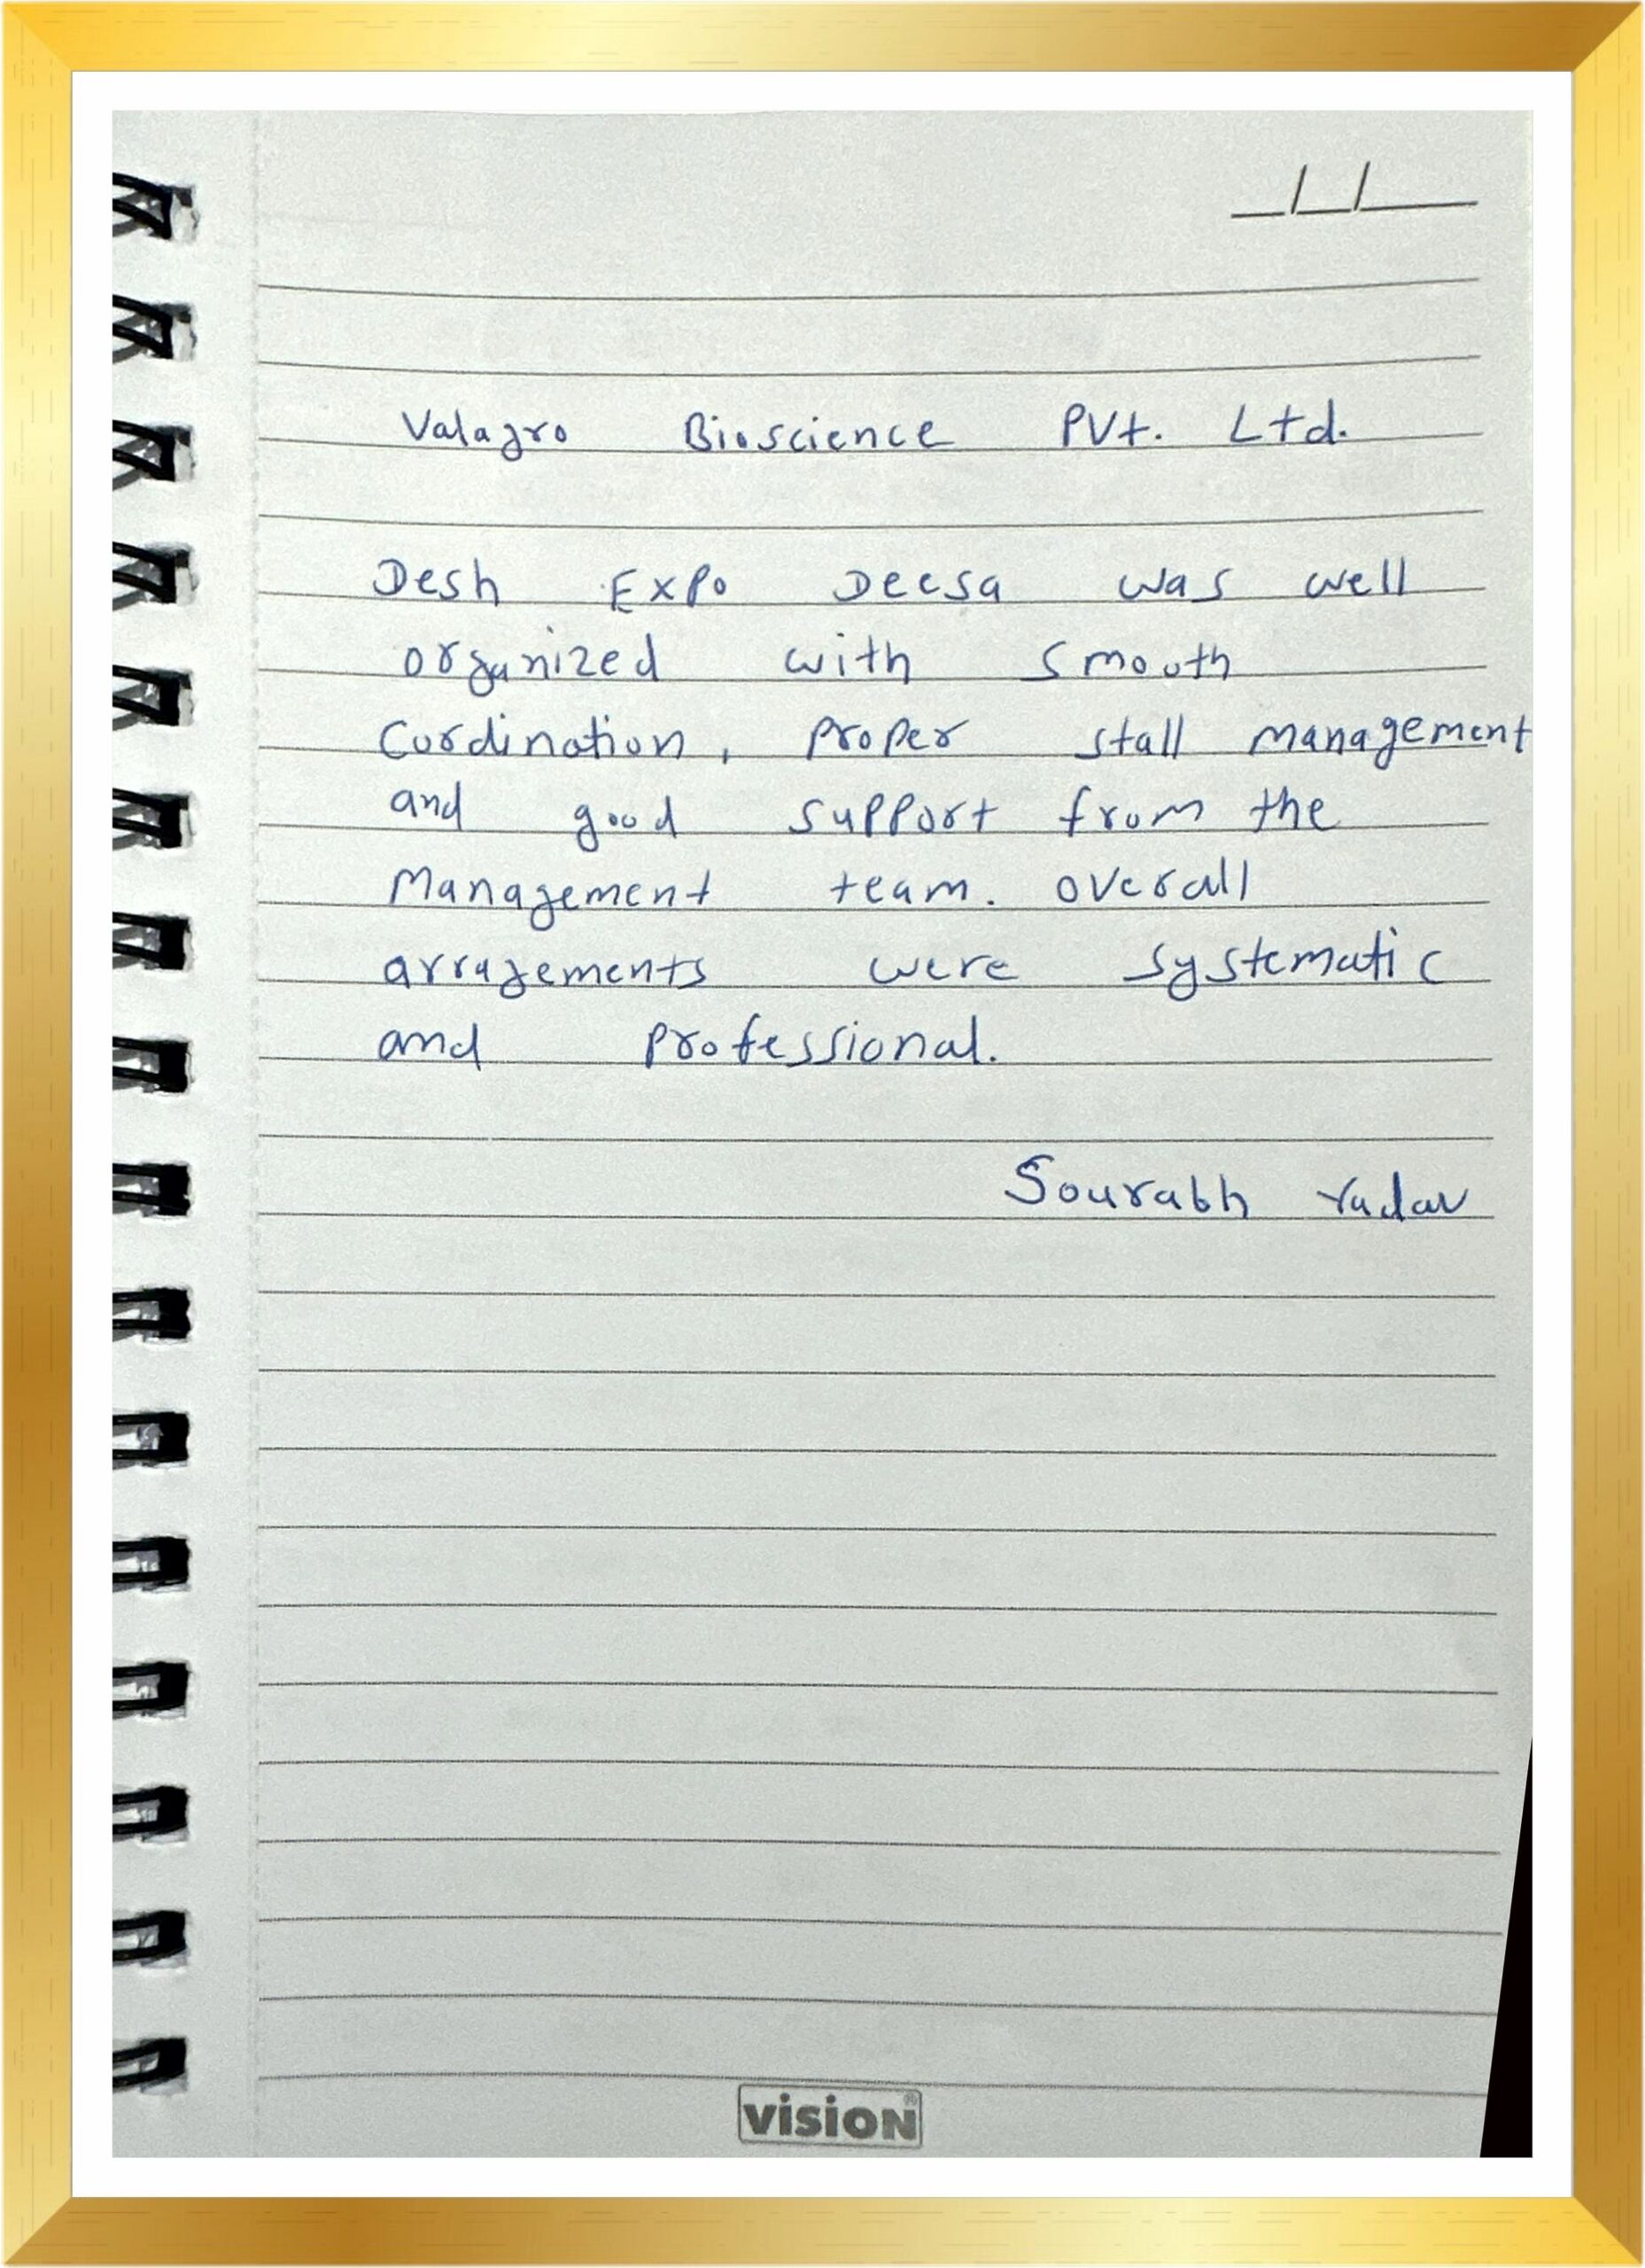 Valagro Bioscience Pvt. Ltd.
Desh Expo Deesa was well
organized with smooth
Cordination, proper stall management
and good support from the
Management team. overall
arragements were systematic
and professional.
Sourabh Yadav
vision®